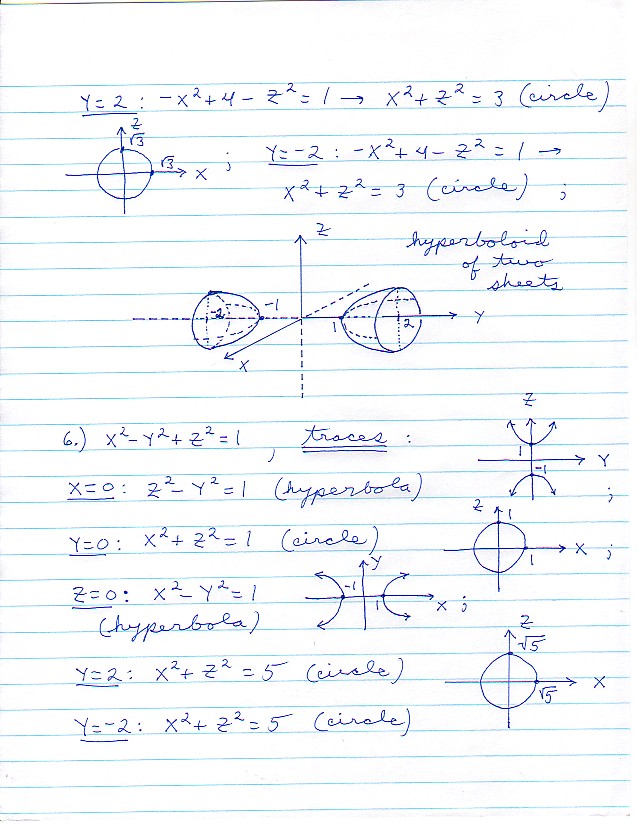 Y=2 : -X²+4-Z²=1 → X²+Z²=3 (circle)
Z
√3
√3
X
;
Y=-2 : -X²+4-Z²=1 →
X²+Z²=3 (circle) ;
Z
hyperboloid
of two
sheets
-2
-1
1
2
Y
X
6.) X²-Y²+Z²=1 , traces :
Z
1
-1
Y
;
X=0 : Z²-Y²=1 (hyperbola)
Y=0 : X²+Z²=1 (circle)
Z
1
1
X
;
Z=0 : X²-Y²=1
(hyperbola)
Y
-1
1
X
;
Y=2 : X²+Z²=5 (circle)
Y=-2 : X²+Z²=5 (circle)
Z
√5
√5
X